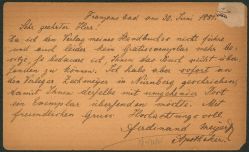 Franzensbad am 30. Juni 1891
Sehr geehrter Herr!
Da ich den Verlag meines Handbuches nicht führe
und auch leider kein Gratisexemplar mehr be-
sitze, so bedauere ich, Ihnen das Buch nicht über-
senden zu können. Ich habe aber sofort an
den Verleger in Nürnberg geschrieben,
damit Ihnen derselbe mit umgehender Post
ein Exemplar übersenden möchte. Mit
freundlichem Gruss Hochachtungsvoll
Ferdinand
Apotheker